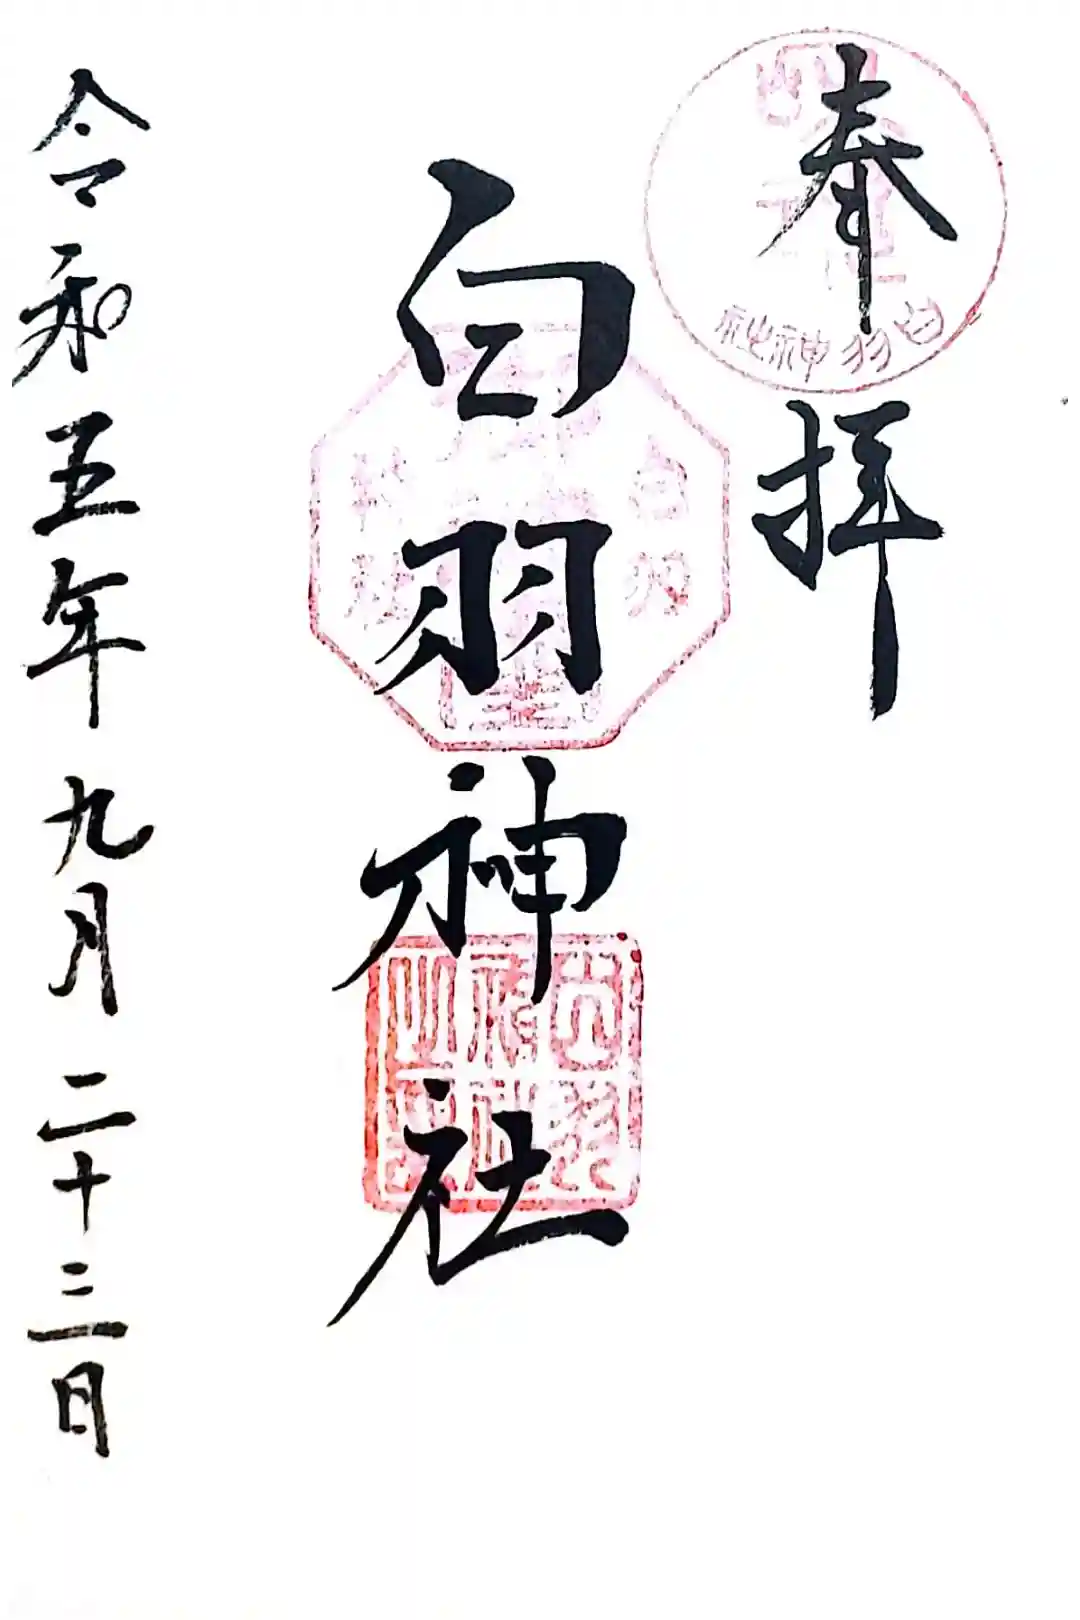 奉拝
白羽神社
白羽神社
白羽
神社
令和五年九月二十三日